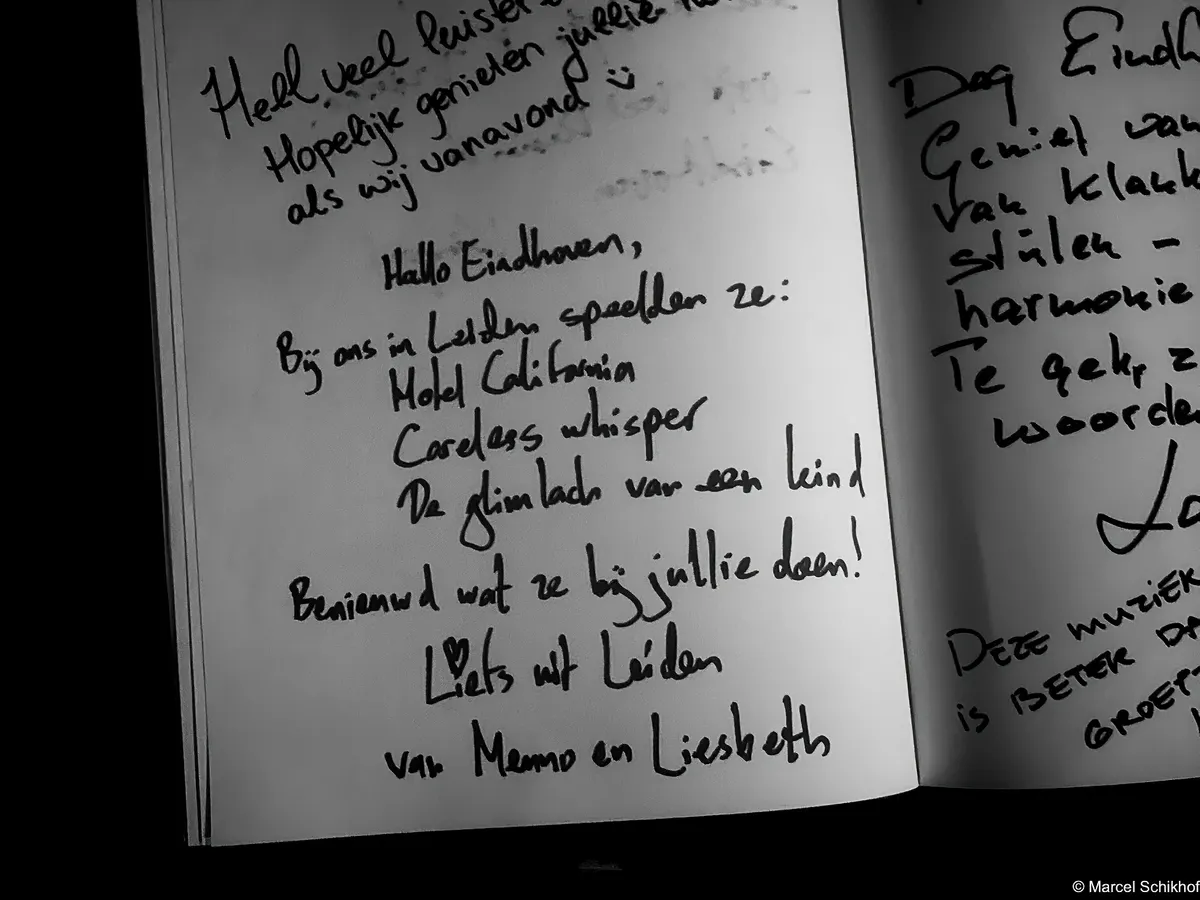 Heel veel luister
Hopelijk genieten jullie
als wij vanavond
Hallo Eindhoven,
Bij ons in Leiden speelden ze:
Hotel California
Careless whisper
De glimlach van een kind
Benieuwd wat ze bij jullie doen!
Liefs uit Leiden
van Menno en Liesbeth
Dag Eindh
Geniet van
van klank
stilen -
harmonie
Te gek,
woorde
DEZE MUZIEK
is BETER DA
GROEP
© Marcel Schikhof